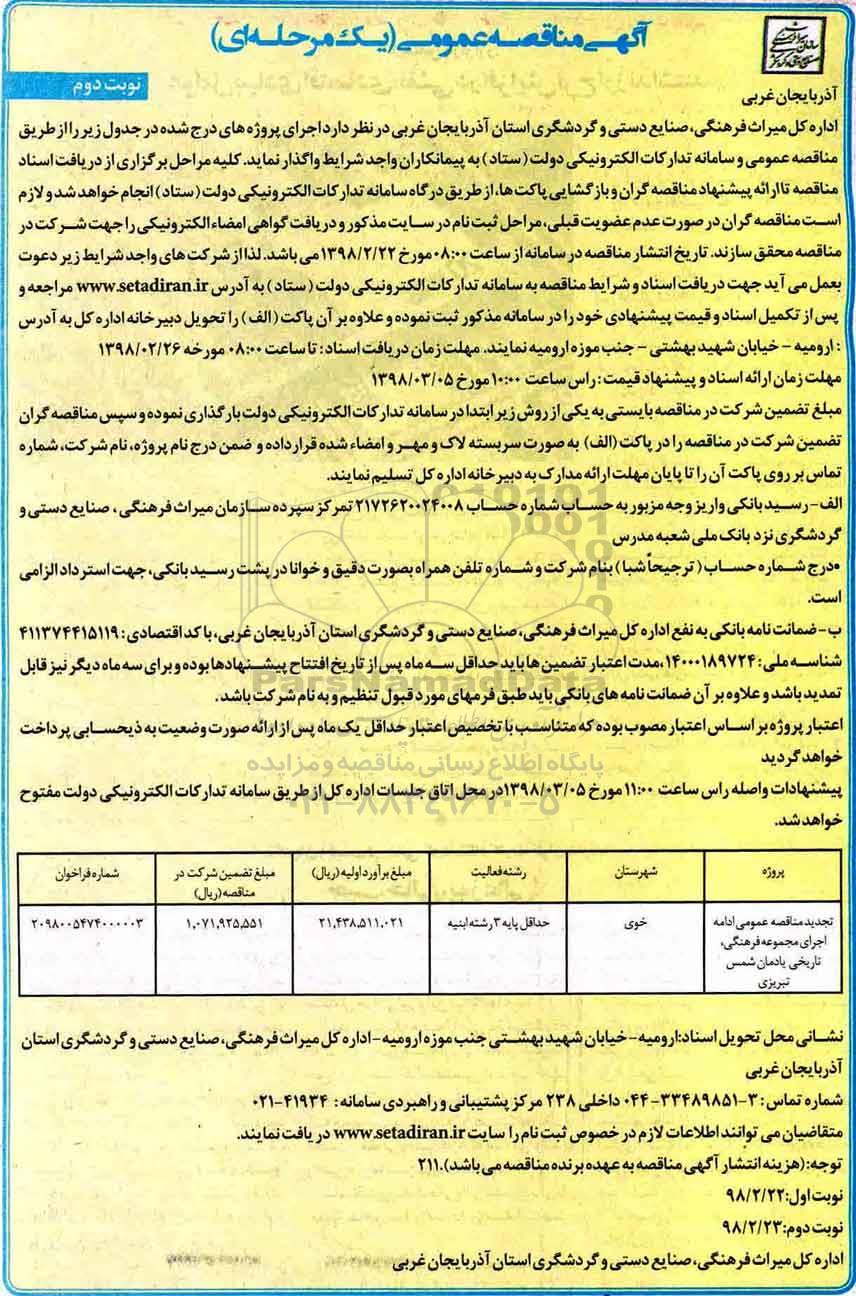 آگهی مناقصه عمومی (یک مرحله‌ای)
نوبت دوم
آذربایجان غربی
اداره کل میراث فرهنگی، صنایع دستی و گردشگری استان آذربایجان غربی در نظر دارد اجرای پروژه های درج شده در جدول زیر را از طریق
مناقصه عمومی و سامانه تدارکات الکترونیکی دولت (ستاد) به پیمانکاران واجد شرایط واگذار نماید. کلیه مراحل برگزاری از دریافت اسناد
مناقصه تا ارائه پیشنهاد مناقصه گران و بازگشایی پاکت ها، از طریق درگاه سامانه تدارکات الکترونیکی دولت (ستاد) انجام خواهد شد و لازم
است مناقصه گران در صورت عدم عضویت قبلی، مراحل ثبت نام در سایت مذکور و دریافت گواهی امضاء الکترونیکی را جهت شرکت در
مناقصه محقق سازند. تاریخ انتشار مناقصه در سامانه از ساعت ۰۸:۰۰ مورخ ۱۳۹۸/۲/۲۲ می باشد. لذا از شرکت های واجد شرایط زیر دعوت
بعمل می آید جهت دریافت اسناد و شرایط مناقصه به سامانه تدارکات الکترونیکی دولت (ستاد) به آدرس www.setadiran.ir مراجعه و
پس از تکمیل اسناد و قیمت پیشنهادی خود را در سامانه مذکور ثبت نموده و علاوه بر آن پاکت (الف) را تحویل دبیرخانه اداره کل به آدرس
: ارومیه - خیابان شهید بهشتی - جنب موزه ارومیه نمایند. مهلت زمان دریافت اسناد: تا ساعت ۰۸:۰۰ مورخه ۱۳۹۸/۰۲/۲۶
مهلت زمان ارائه اسناد و پیشنهاد قیمت: راس ساعت ۱۰:۰۰ مورخ ۱۳۹۸/۰۳/۰۵
مبلغ تضمین شرکت در مناقصه بایستی به یکی از روش زیر ابتدا در سامانه تدارکات الکترونیکی دولت بارگذاری نموده و سپس مناقصه گران
تضمین شرکت در مناقصه را در پاکت (الف) به صورت سربسته لاک و مهر و امضاء شده قرار داده و ضمن درج نام پروژه، نام شرکت، شماره
تماس بر روی پاکت آن را تا پایان مهلت ارائه مدارک به دبیرخانه اداره کل تسلیم نمایند.
الف- رسید بانکی واریز وجه مزبور به حساب شماره حساب ۲۱۷۲۶۲۰۰۲۴۰۰۸ تمرکز سپرده سازمان میراث فرهنگی، صنایع دستی و
گردشگری نزد بانک ملی شعبه مدرس
•درج شماره حساب (ترجیحاً شبا) بنام شرکت و شماره تلفن همراه بصورت دقیق و خوانا در پشت رسید بانکی، جهت استرداد الزامی
است.
ب- ضمانت نامه بانکی به نفع اداره کل میراث فرهنگی، صنایع دستی و گردشگری استان آذربایجان غربی، با کد اقتصادی: ۴۱۱۳۷۴۴۱۵۱۱۹
شناسه ملی: ۱۴۰۰۰۱۸۹۷۲۴، مدت اعتبار تضمین ها باید حداقل سه ماه پس از تاریخ افتتاح پیشنهادها بوده و برای سه ماه دیگر نیز قابل
تمدید باشد و علاوه بر آن ضمانت نامه های بانکی باید طبق فرمهای مورد قبول تنظیم و به نام شرکت باشد.
اعتبار پروژه بر اساس اعتبار مصوب بوده که متناسب با تخصیص اعتبار حداقل یک ماه پس از ارائه صورت وضعیت به ذیحسابی پرداخت
خواهد گردید
پیشنهادات واصله راس ساعت ۱۱:۰۰ مورخ ۱۳۹۸/۰۳/۰۵ در محل اتاق جلسات اداره کل از طریق سامانه تدارکات الکترونیکی دولت مفتوح
خواهد شد.
ParsNamadData
پایگاه اطلاع رسانی مناقصه و مزایده
پروژه شهرستان رشته فعالیت مبلغ برآورد اولیه (ریال) مبلغ تضمین شرکت در مناقصه (ریال) شماره فراخوان
تجدید مناقصه عمومی ادامه خوی حداقل پایه ۳ رشته ابنیه ۲۱,۴۳۸,۵۱۱,۰۲۱ ۱,۰۷۱,۹۲۵,۵۵۱ ۲۰۹۸۰۰۵۴۷۴۰۰۰۰۰۳
اجرای مجموعه فرهنگی،
تاریخی یادمان شمس
تبریزی
نشانی محل تحویل اسناد: ارومیه- خیابان شهید بهشتی جنب موزه ارومیه- اداره کل میراث فرهنگی، صنایع دستی و گردشگری استان
آذربایجان غربی
شماره تماس: ۳-۳۳۴۸۹۸۵۱-۰۴۴ داخلی ۲۳۸ مرکز پشتیبانی و راهبردی سامانه: ۴۱۹۳۴-۰۲۱
متقاضیان می توانند اطلاعات لازم در خصوص ثبت نام را سایت www.setadiran.ir دریافت نمایند.
توجه: (هزینه انتشار آگهی مناقصه به عهده برنده مناقصه می باشد). ۲۱۱
نوبت اول: ۹۸/۲/۲۲
نوبت دوم: ۹۸/۲/۲۳
اداره کل میراث فرهنگی، صنایع دستی و گردشگری استان آذربایجان غربی